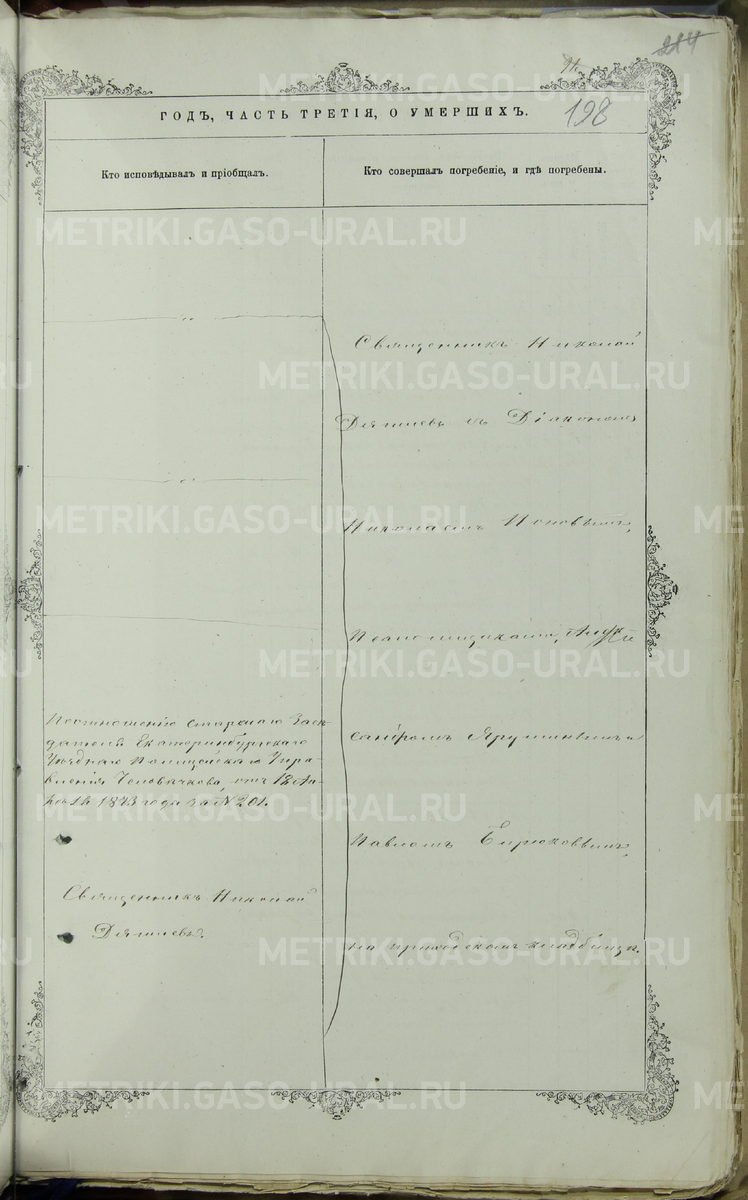 214
198
ГОДЪ, ЧАСТЬ ТРЕТІЯ, О УМЕРШИХЪ.
Кто исповѣдывалъ и пріобщалъ.
Кто совершалъ погребеніе, и гдѣ погребены.
По отношенію старшаго Засѣ-
дателя Екатеринбургскаго
Уѣзднаго Полицейскаго Упра-
вленія отъ 18
1873 года за № 201.
Священникъ Николай
Священникъ Николай
съ Діакономъ
Николаемъ Поповымъ,
Псаломщиками,
и
Павломъ Бирюковымъ,
на приходскомъ кладбищѣ.
METRIKI.GASO-URAL.RU